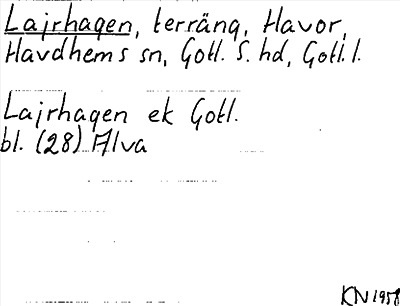 Lajrhagen, terräng, Havor,
Havdhems sn, Gotl. S. hd, Gotl. l.
Lajrhagen ek Gotl.
bl. (28) Alva
KN 1958